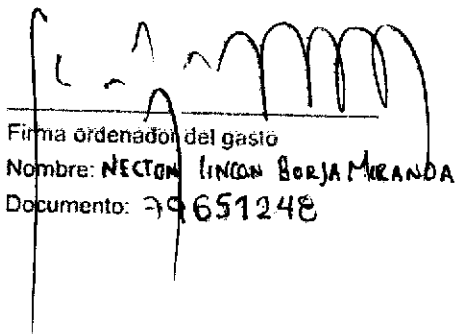 Firma ordenador del gasto
Nombre: NECTON LINCON BORJA MIRANDA
Documento: 79651248